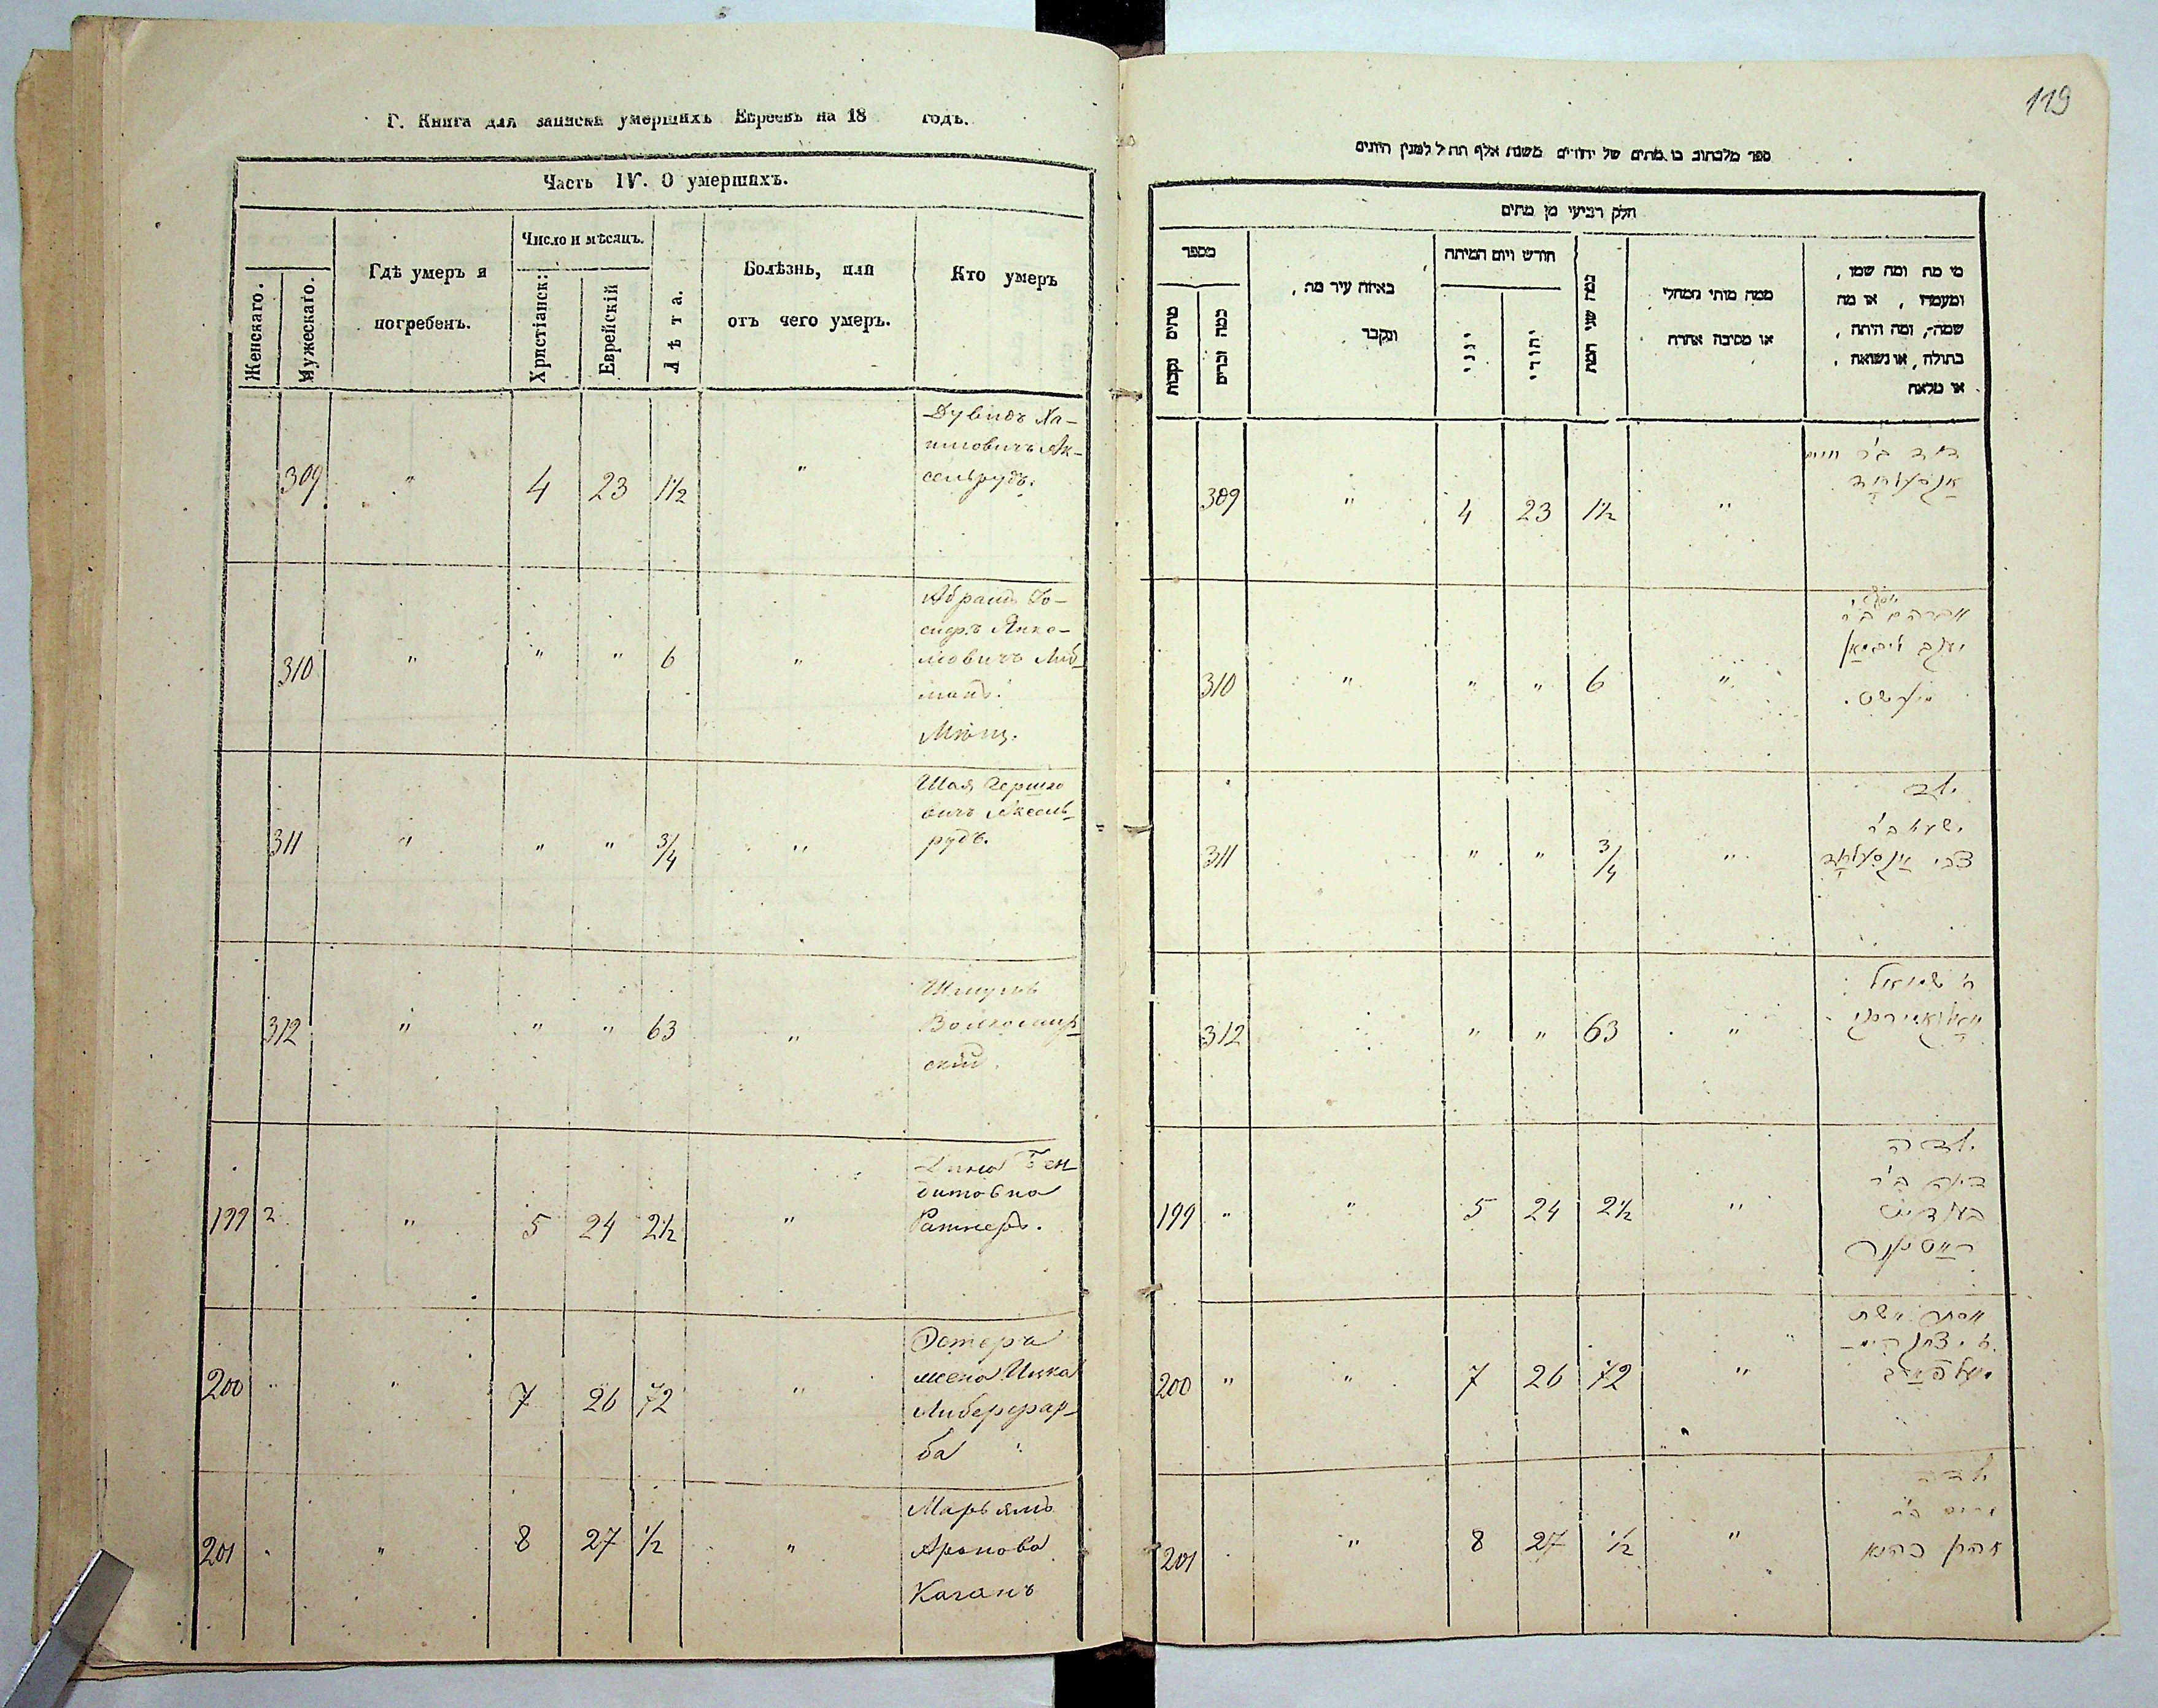 Г. Книга для записки умершихъ Евреевъ на 18 годъ.
Часть IV. О умершихъ.
Женскаго.
Мужескаго.
Гдѣ умеръ и
погребенъ.
Число и мѣсяцъ.
Христіанск:
Еврейскій
Лѣта.
Болѣзнь, или
отъ чего умеръ.
Кто умеръ
309 " 4 23 1½ "
Дувидъ Ха-
имовичъ Ак-
сельрудъ.
310 " " " 6 "
Абрамъ Іо-
сифъ Янке-
левичъ Либ-
манъ.
311 " " " 3/4 "
Шая Гершко
вичъ Аксель-
рудъ.
312 " " " 63 "
Шмуль
Волкомир-
скій.
199 " 5 24 2½ "
Дина Бен-
дитовна
Ратнеръ.
200 " " 7 26 72 "
Эстеръ
жена Ицка
Либерфар-
ба
201 " " 8 27 ½ "
Марьямъ
Аронова
Каганъ
119
ספר מלכתוב בו מתים של יהודים משנת אלף תת ל למנין היונים
חלק רביעי מן מתים
מספר
מתים נקבות
כמה זכרים
באיזה עיר מת,
ונקבר
חודש ויום המיתה
יוני
יהודי
כמה שני המת
ממה מותי המחלי
או מסיבה אחרת
מי מת ומה שמו,
ומעמדו, או מה
שמה, ומה היתה,
בתולה, או נשואה,
או גולאה
309 " 4 23 1½ "
דוד ב"ר חיים
אקסעלרוד
310 " " " 6 "
אברהם יוסף ב"ר
יעקב ליבמאן
311 " " 3/4 "
ילד
ישעי' ב"ר
צבי אקסעלראד
312 " " 63 "
ר' שמואל
199 " " 5 24 2½ "
ילדה
דינה ב"ר
בענדיט
ראטנער
200 " " 7 26 72 "
אסתר אשת
ר' יצחק
201 " 8 27 ½ "
ילדה
מרים ב"ר
אהרן כהנא